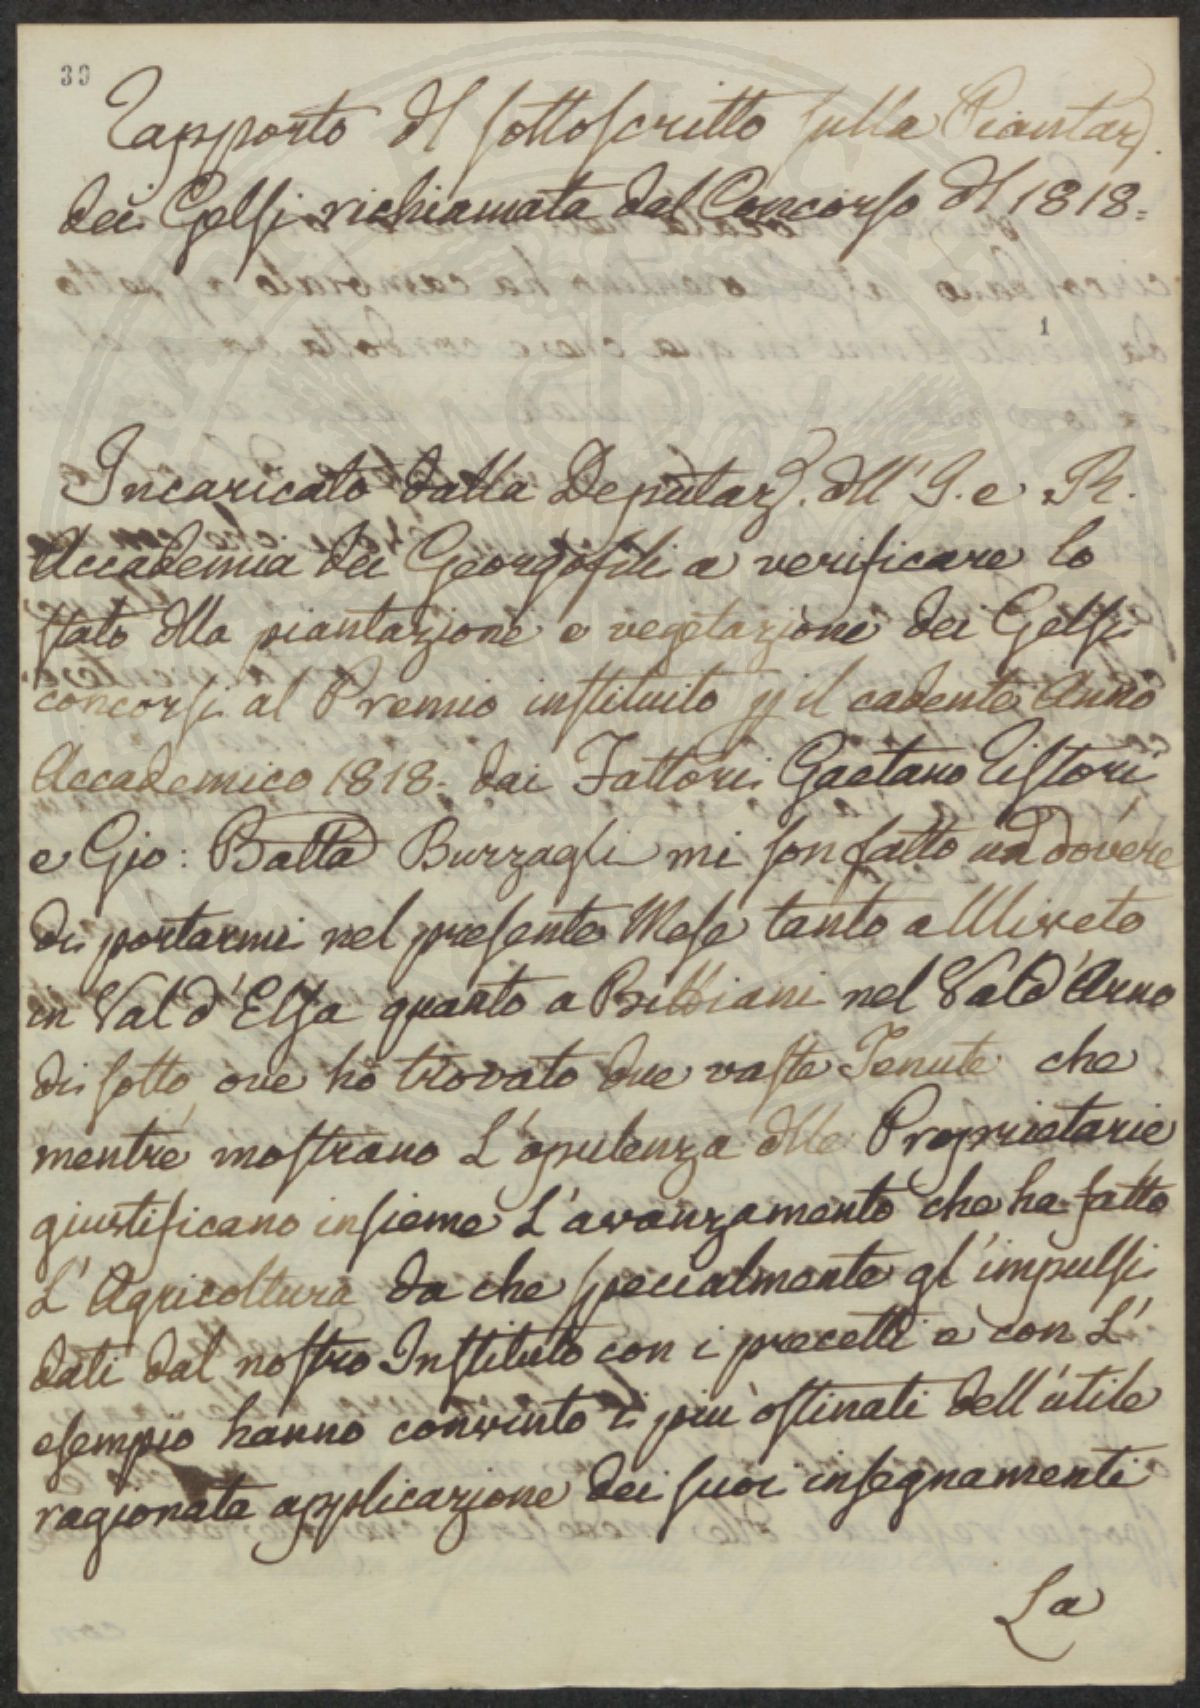 39
Rapporto del sottoscritto sulla Piantaz.
dei Gelsi richiamata dal Concorso del 1818=
1
Incaricato dalla Deputaz. dell' I. e R.
Accademia dei Georgofili a verificare lo
stato della piantazione e vegetazione dei Gelsi
concorsi al Premio instituito p il cadente Anno
Accademico 1818= dai Fattori Gaetano Pistori
e Gio: Batta Buzzagli mi son fatto un dovere
di portarmi nel presente Mese tanto a Uliveto
in Val d'Elsa quanto a Bibbiani nel Val d'Arno
di sotto ove ho trovato due vaste Tenute che
mentre mostrano L'opulenza delle Proprietarie
giustificano insieme L'avanzamento che ha fatto
L'Agricoltura da che specialmente gl'impulsi
dati dal nostro Instituto con i precetti e con L'
esempio hanno convinto i più ostinati dell'utile
ragionata applicazione dei suoi insegnamenti
La